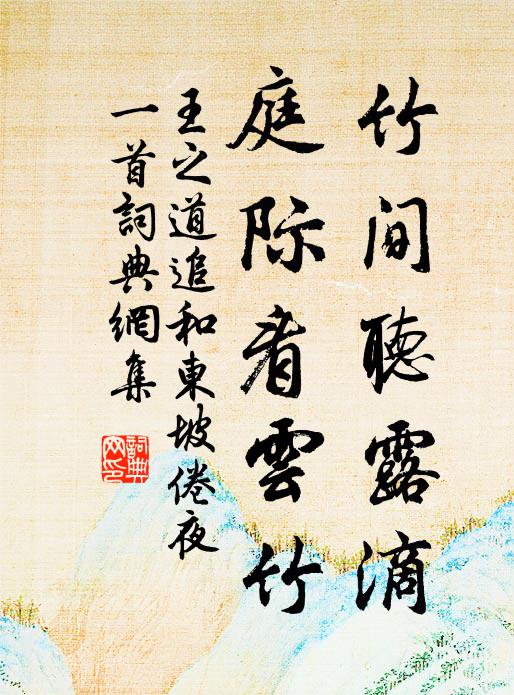 竹間聽露滴
庭际看雲竹
王之道追和東坡倦夜
一首詞典網集
詞典网印